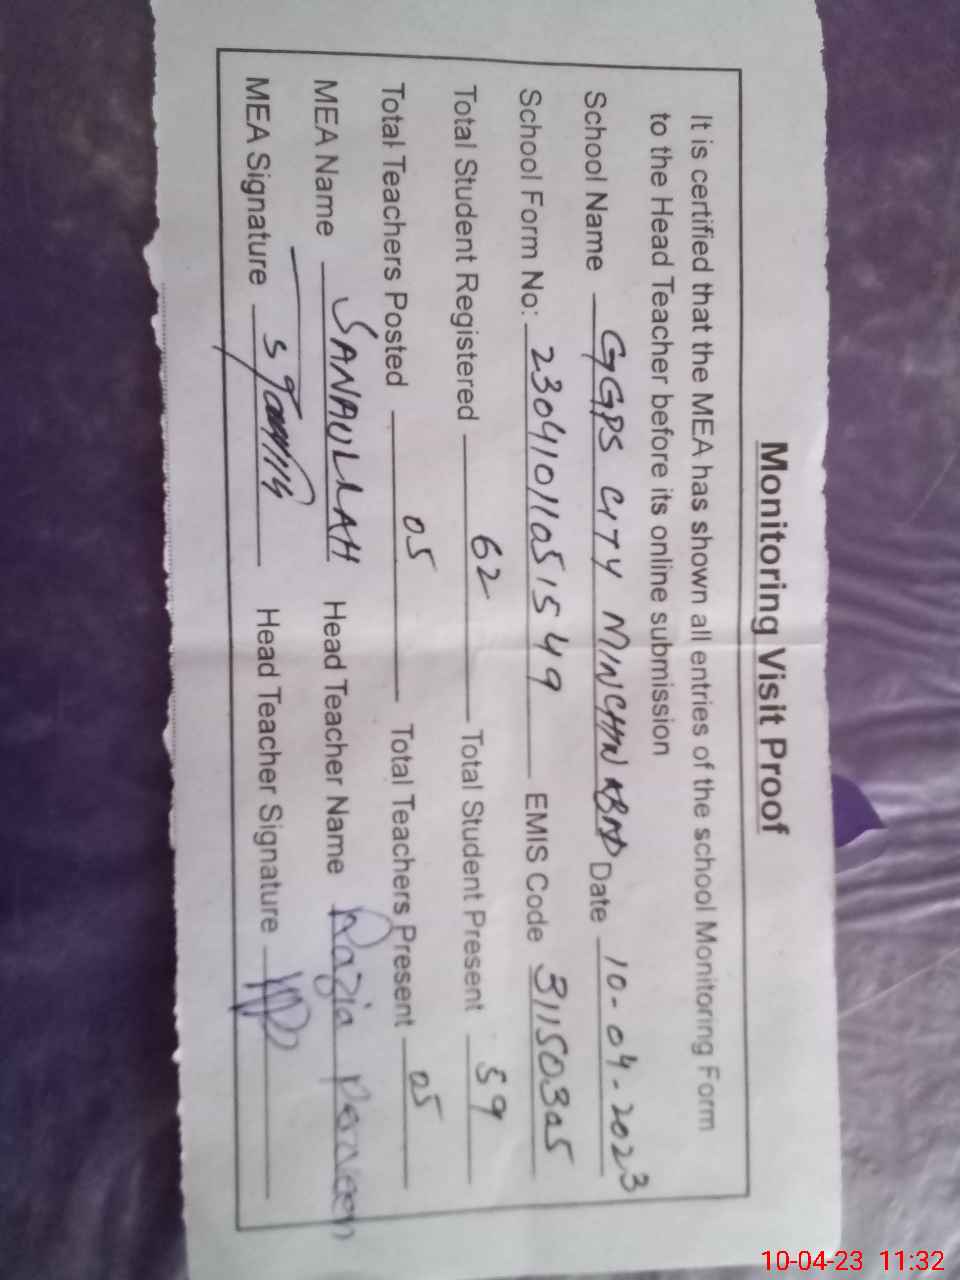 Monitoring Visit Proof
It is certified that the MEA has shown all entries of the school Monitoring Form
to the Head Teacher before its online submission
School Name GGPS CITY MINCHN ABAD Date 10-04-2023
School Form No: 230410110515 49 EMIS Code 31150305
Total Student Registered 62 Total Student Present 59
Total Teachers Posted 05 Total Teachers Present 05
MEA Name SANAULLAH Head Teacher Name Razia Perveen
MEA Signature Head Teacher Signature
10-04-23 11:32